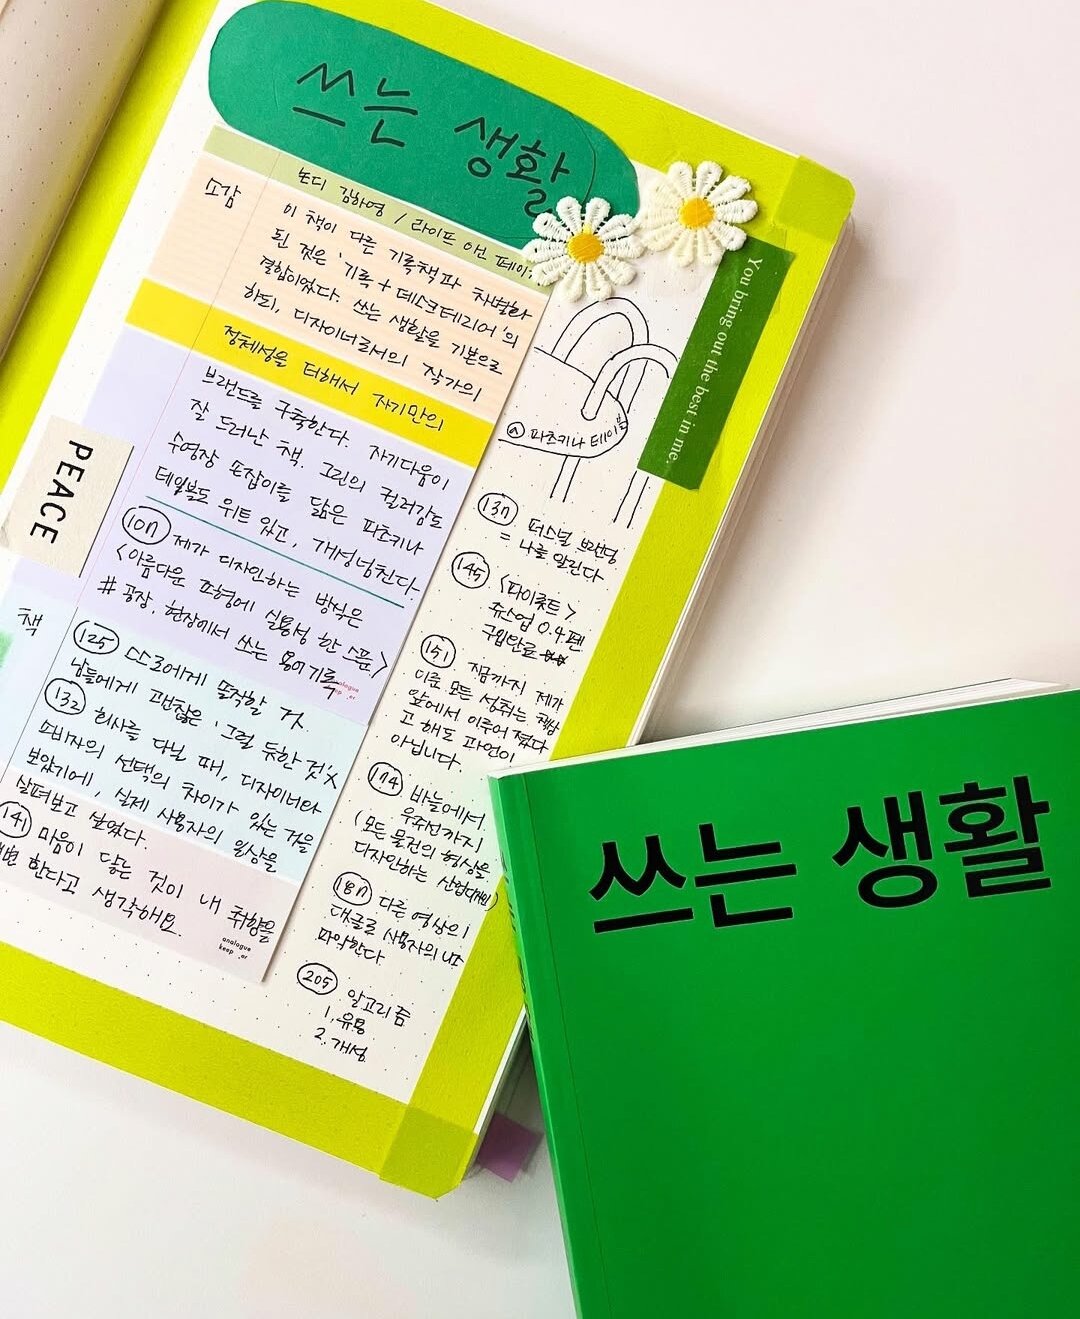 쓰는 생활
논디 김하영 / 라이프 앤 페이
소감
이 책이 다른 기록책과 차별화
된 것은 '기록 + 데스크테리어'의
결합이었다. 쓰는 생활을 기본으로
하되, 디자이너로서의 작가의
정체성을 더해서 자기만의
브랜드를 구축한다. 자기다움이
잘 드러난 책. 그린의 컬러감도
수영장 손잡이를 닮은 파츠키나
테이블도 위트 있고, 개성넘친다.
PEACE
107 제가 디자인하는 방식은
<아름다운 표형에 실용성 한 스푼>
# 공장, 현장에서 쓰는 용어기록
analogue
keep .er
책
125 스스로에게 솔직할 것
남들에게 괜찮은 '그럴 듯한 것'x
132 회사를 다닐 때, 디자이너와
소비자의 선택의 차이가 있는 것을
보았기에, 실제 사용자의 일상을
살펴보고 싶었다.
141 마음이 닿는 것이 내 취향을
한다고 생각해요
analogue
keep .er
You bring out the best in me.
파츠키나 테이블
137 퍼스널 브랜딩
= 나를 알린다
145 <파이롯트>
쥬스업 0.4 펜
구입완료
151 지금까지 제가
이룬 모든 성취는 책상
앞에서 이루어졌다
고 해도 과언이
아닙니다.
174 바늘에서
우주선까지
(모든 물건의 형상을
디자인하는 산업디자인)
187 다른 영상의
댓글로 사용자의 니즈
파악한다.
205 알고리즘
1. 유용
2. 개성
쓰는 생활